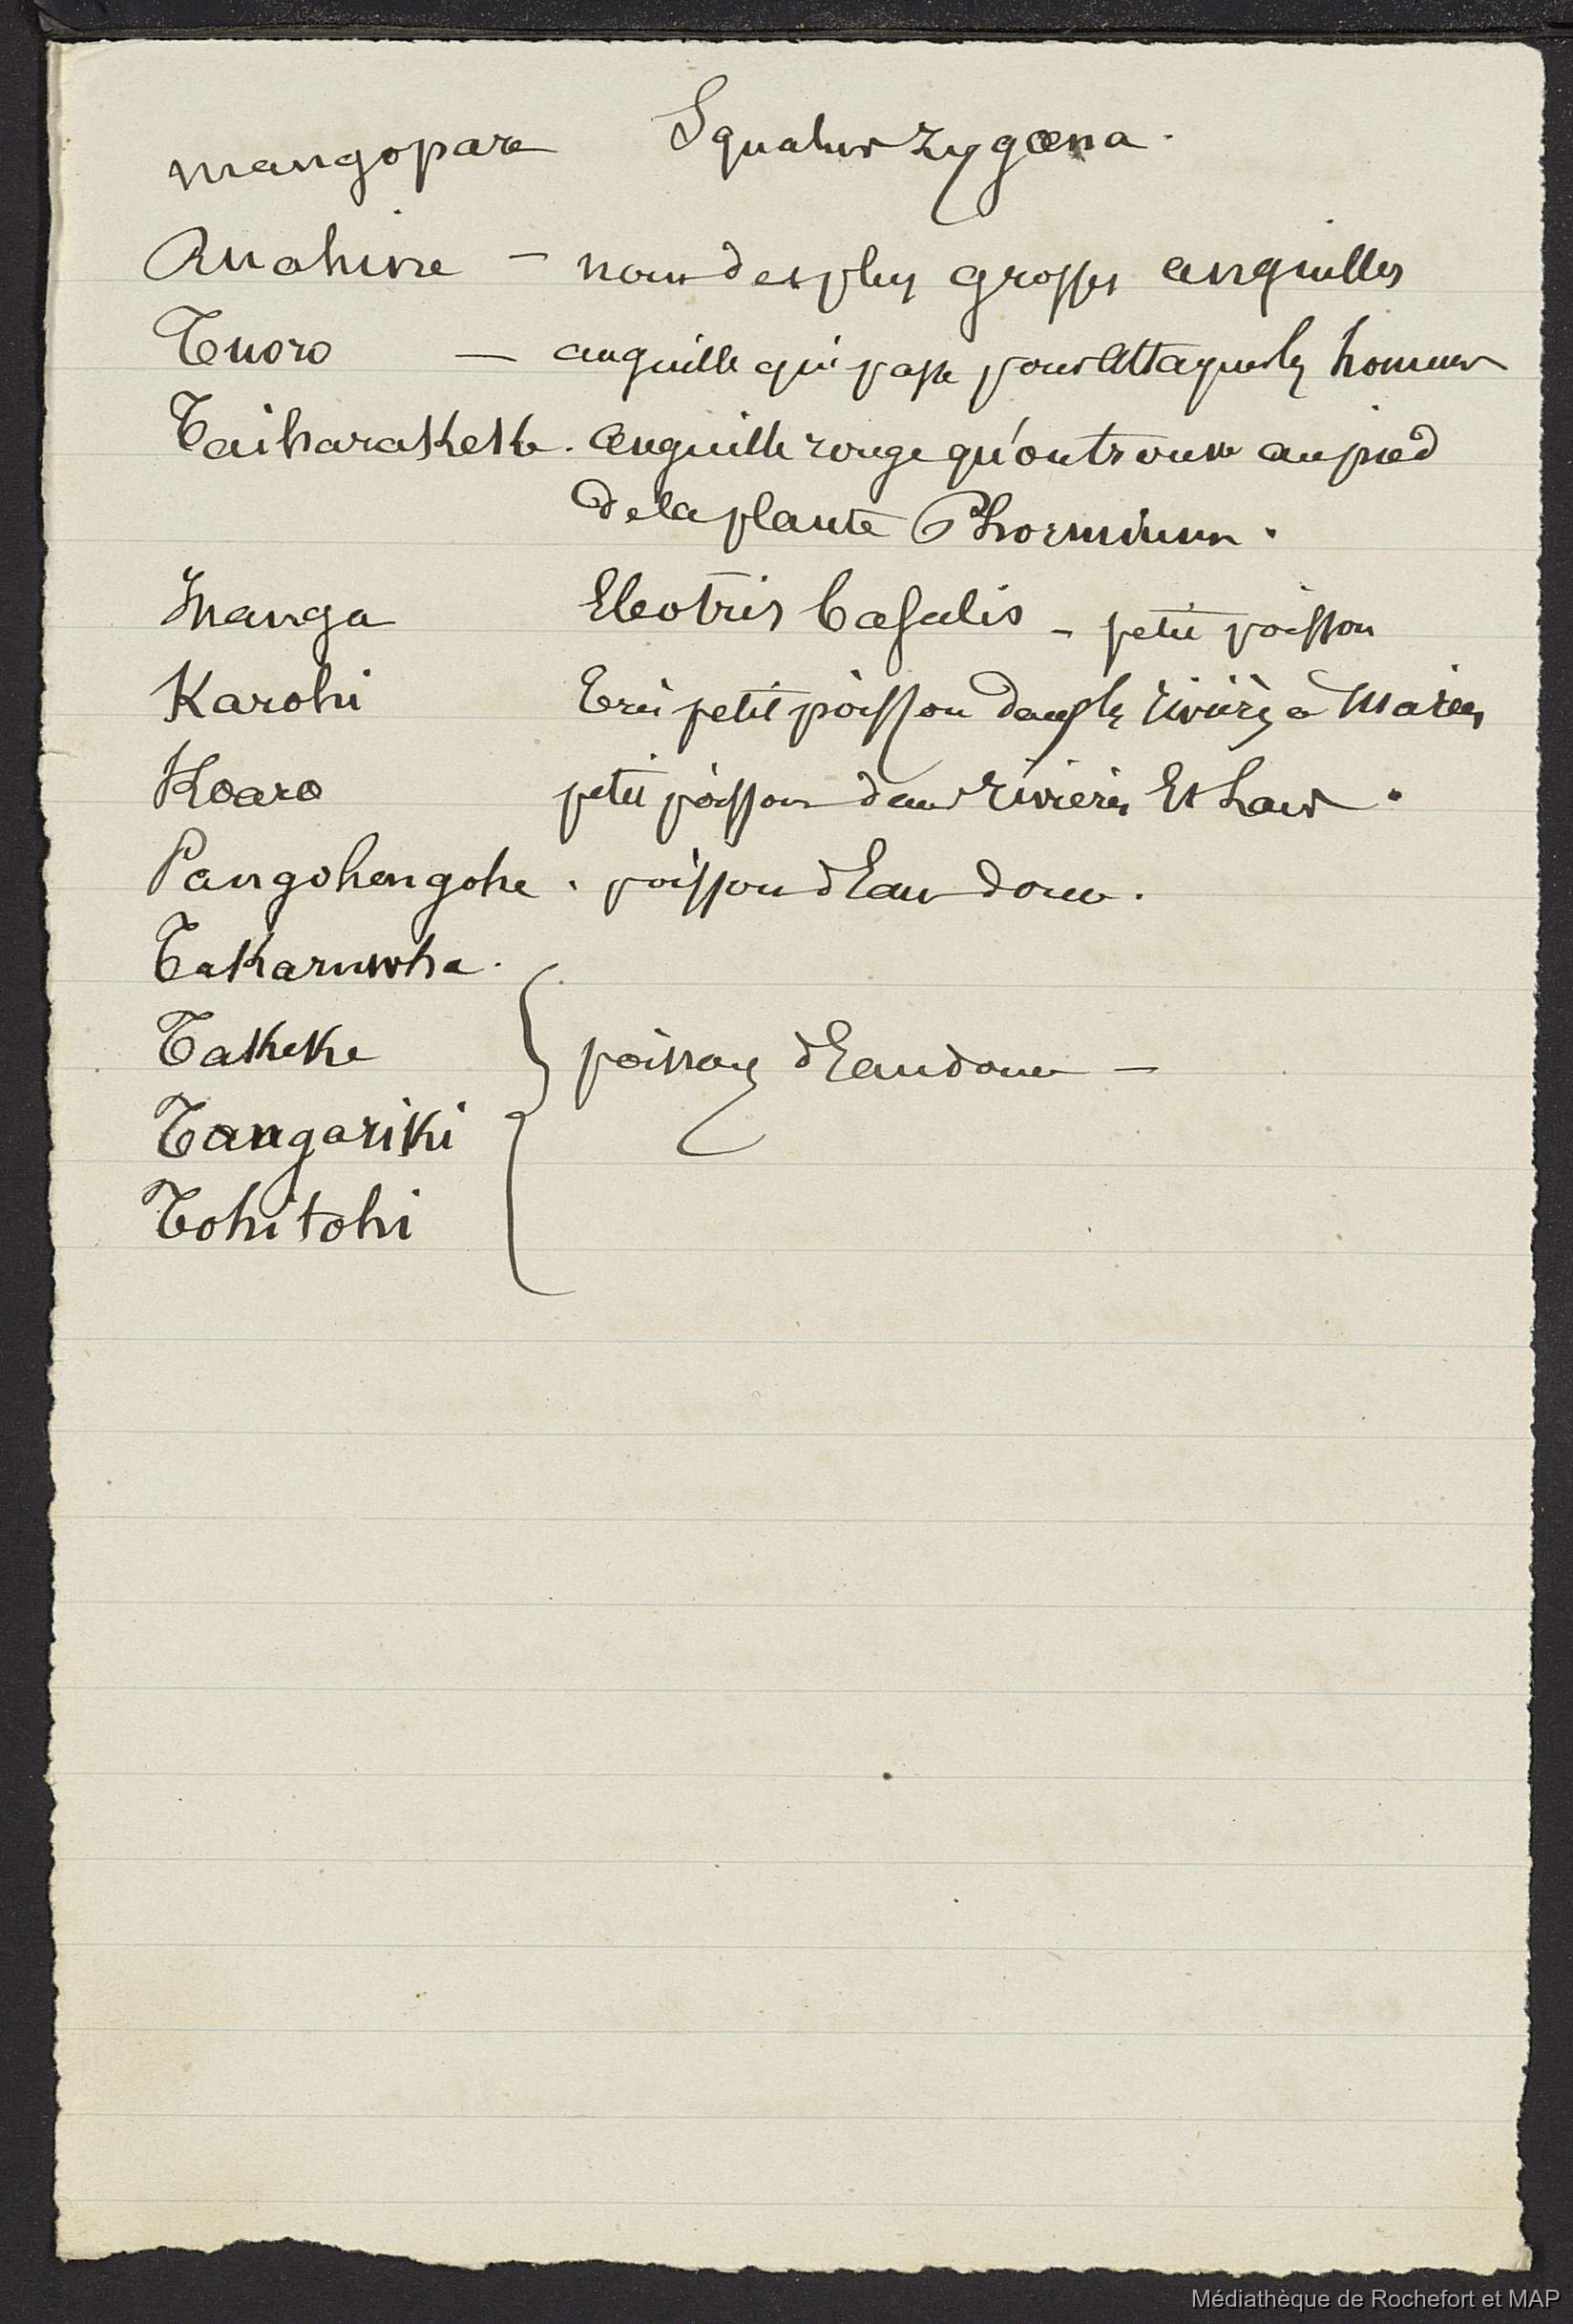 mangopare Squalus zygœna.
Ruahine — nom des plus grosses anguilles
Tuoro — anguille qui passe pour attaquer les hommes
Taiharakeke. anguille rouge qu'on trouve au pied
de la plante Phormium.
Inanga Eleotris basalis – petit poisson
Karohi très petit poisson dans les rivières à marées
Koaro petit poisson dans rivières et lacs.
Pangohengohe. poisson d'eau douce.
Takaruwha.
Takeke
poissons d'eau douce —
Tangariki
Tohitohi
Médiathèque de Rochefort et MAP